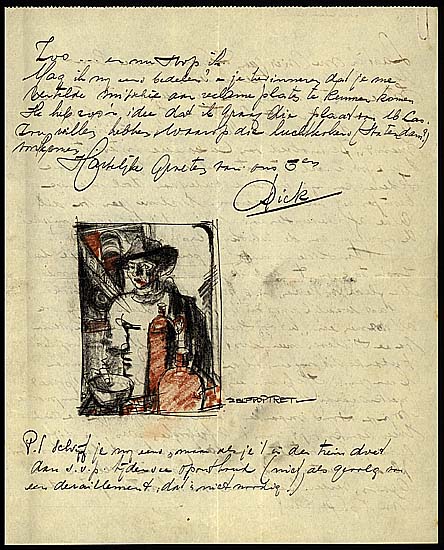 Zoo ... en nu stop ik
Mag ik my eens bedelen? en je herinneren dat je me
vertelde misschien aan reclame plates te kunnen komen
Ik heb zoo'n idee dat ik graag die plaat van
zou willen hebben waarop die
voorkomen
Hartelijke Groeten van ons 3en
Dick
ZELFPORTRET
P.S schrijf je my eens, maar als je 't in den trein doet
dan s.v.p. tydens een oponthoud (niet als gevolg van
een deraillement, dat is niet noodig)